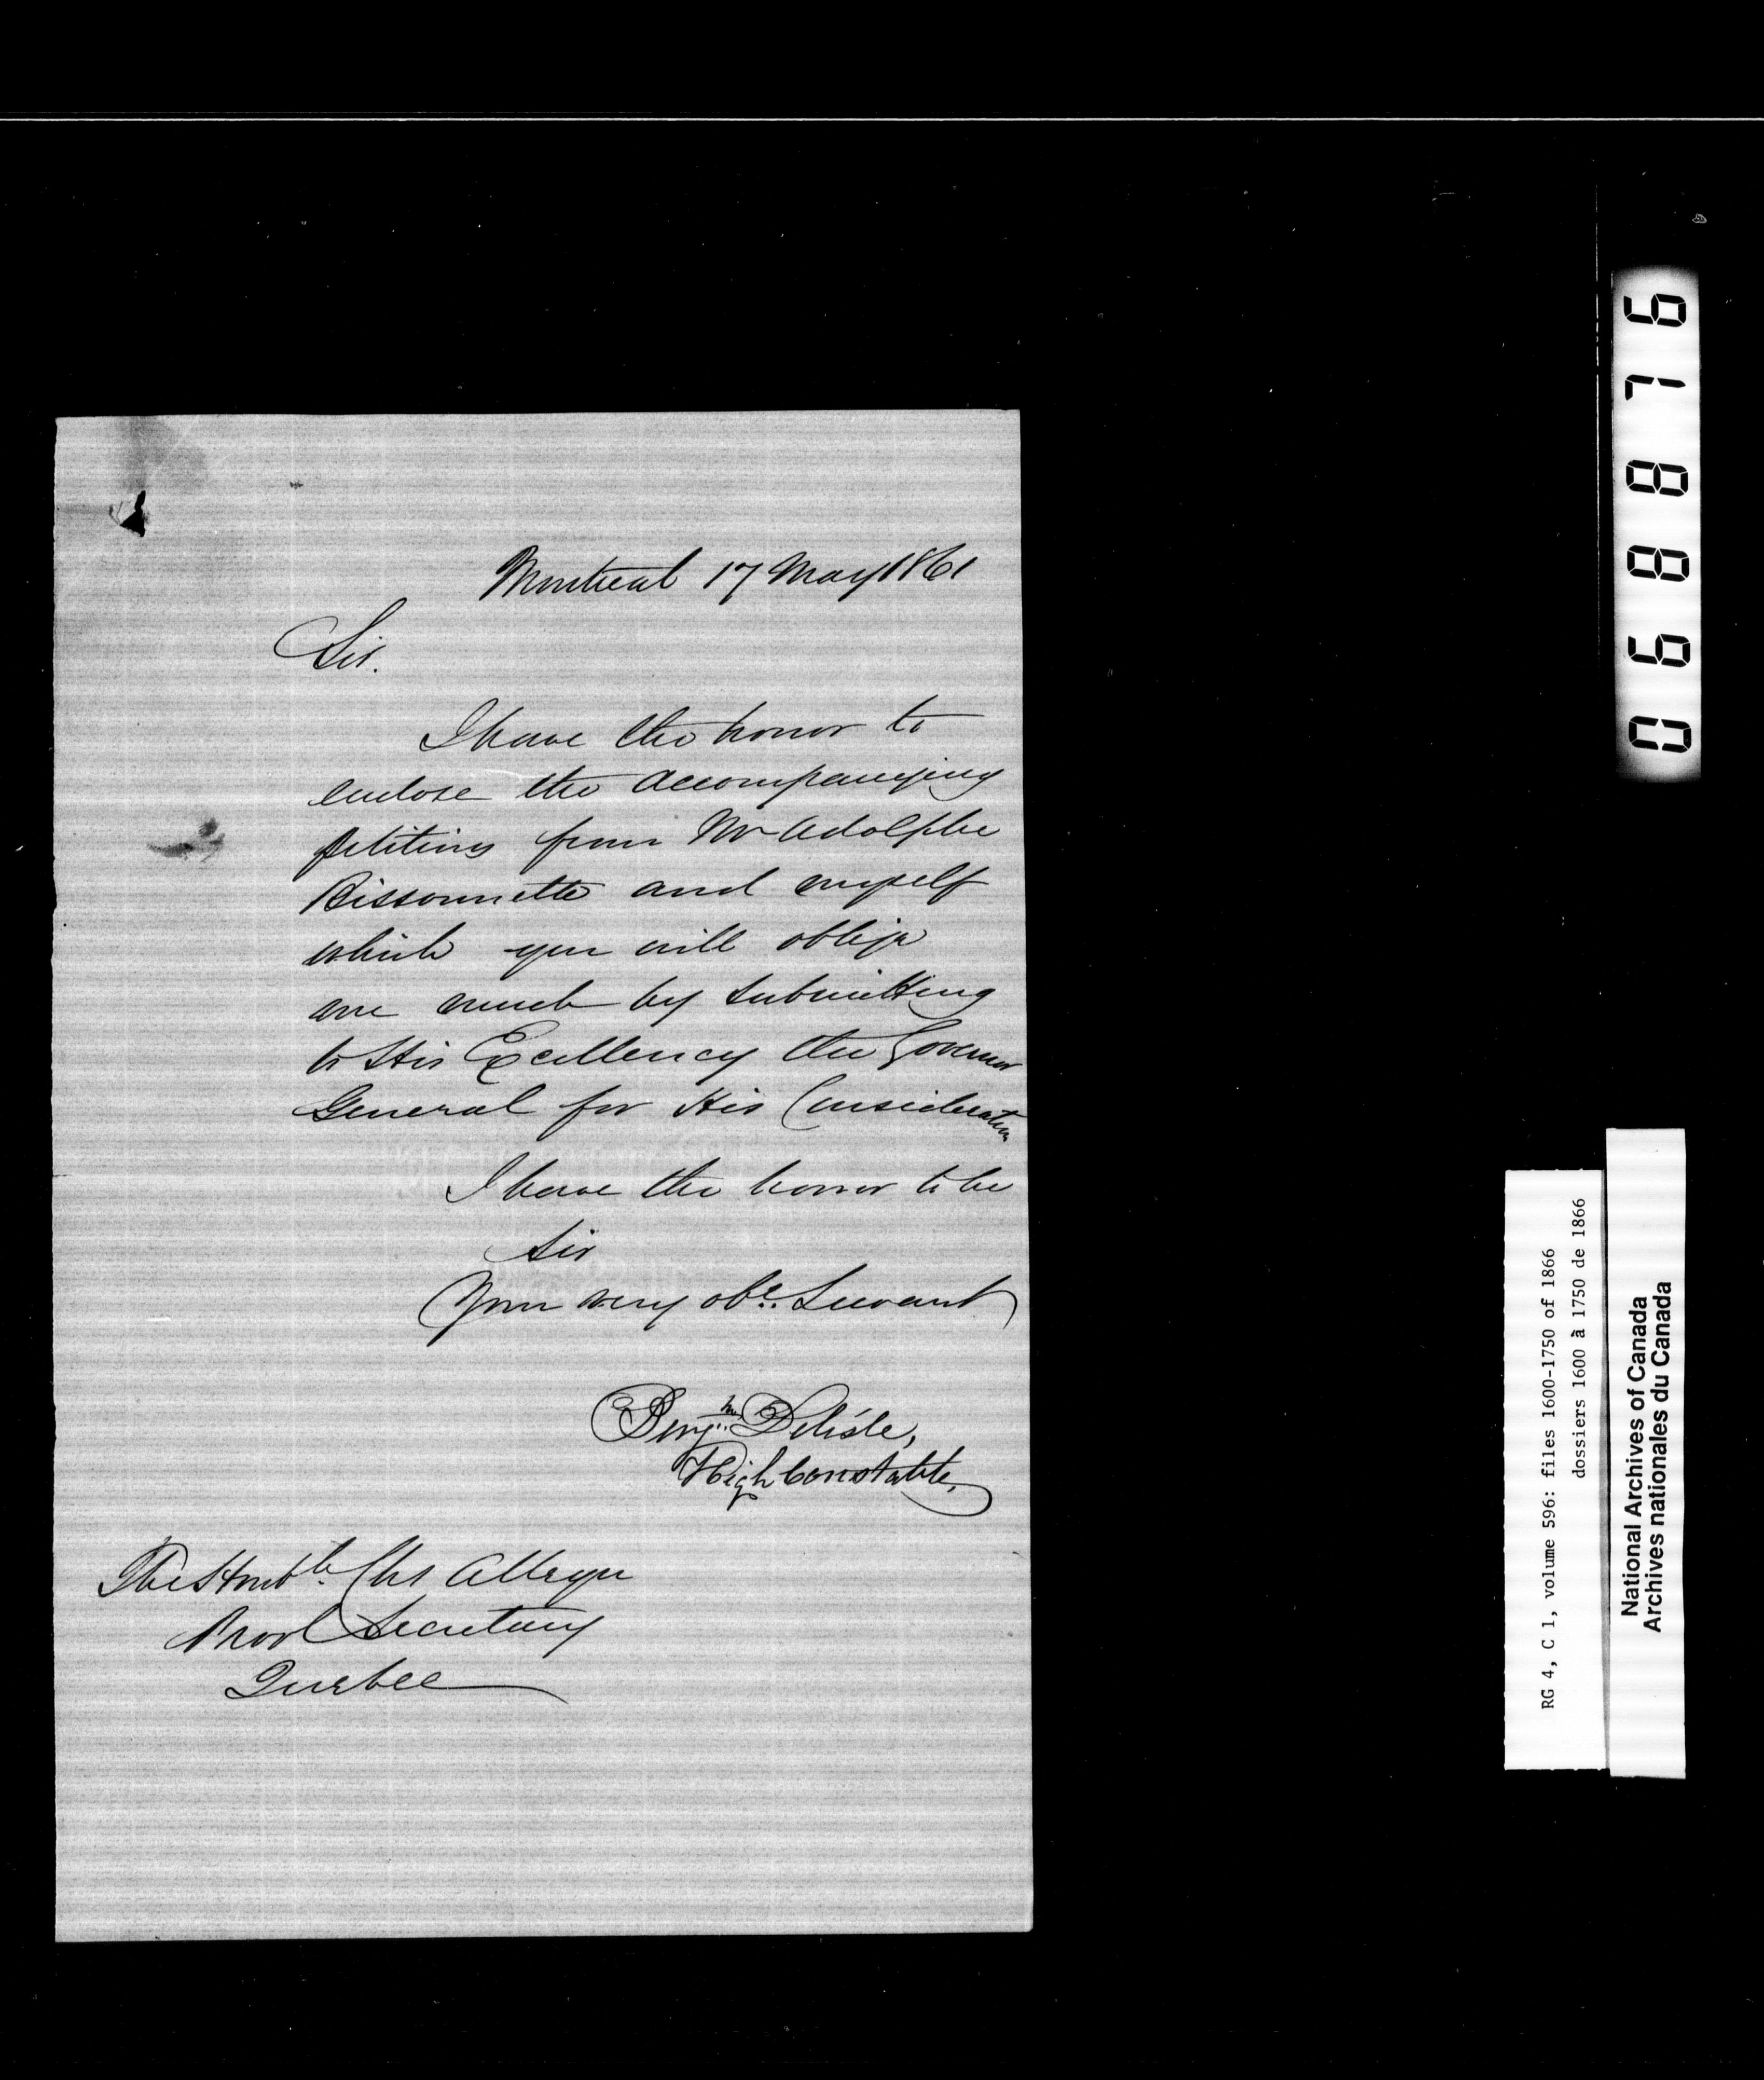 Montreal 17 May 1861
Sir.
I have the honor to
enclose the accompanying
petitions from Mr Adolphe
Bissonnette and myself
which you will oblige
me much by submitting
to His Excellency the Governor
General for His Consideration
I have the honor to be
Sir
Your very obt. Servant
Benjn. Delisle,
High Constable,
The Honble. Chs Alleyn
Provl Secretary
Quebec
068876
RG 4, C 1, volume 596: files 1600-1750 of 1866
dossiers 1600 à 1750 de 1866
National Archives of Canada
Archives nationales du Canada